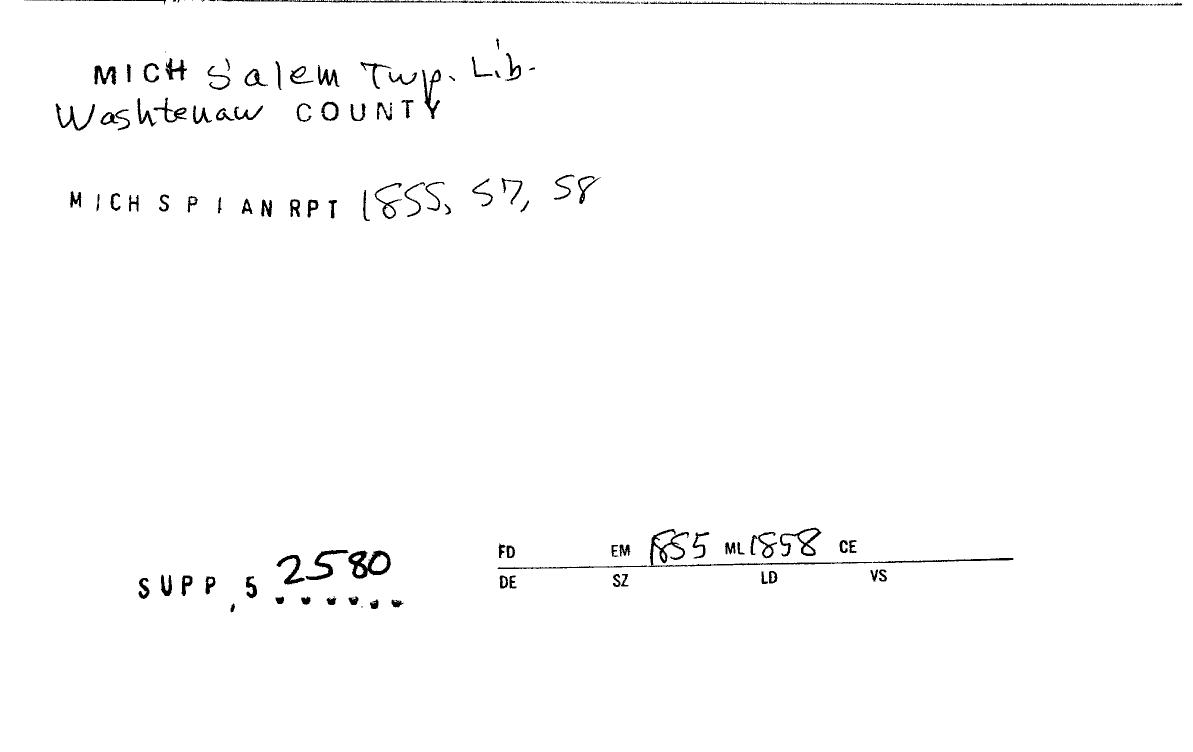 MICH Salem Twp. Lib.
Washtenaw COUNTY
MICH S P I AN RPT 1855, 57, 58
SUPP, 5 2580
FD EM 1855 ML 1858 CE
DE SZ LD VS